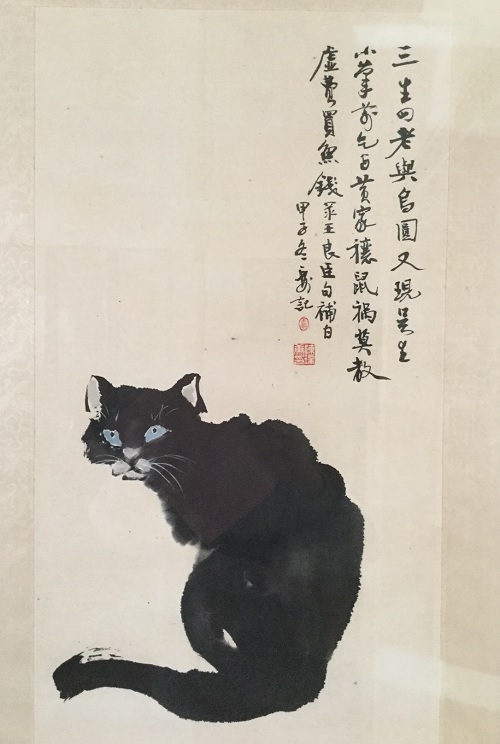 三生白老與烏圓又現吳生
小筆前乞与黃家禳鼠禍莫教
虛費買魚錢 王良臣句補白
甲子冬 記